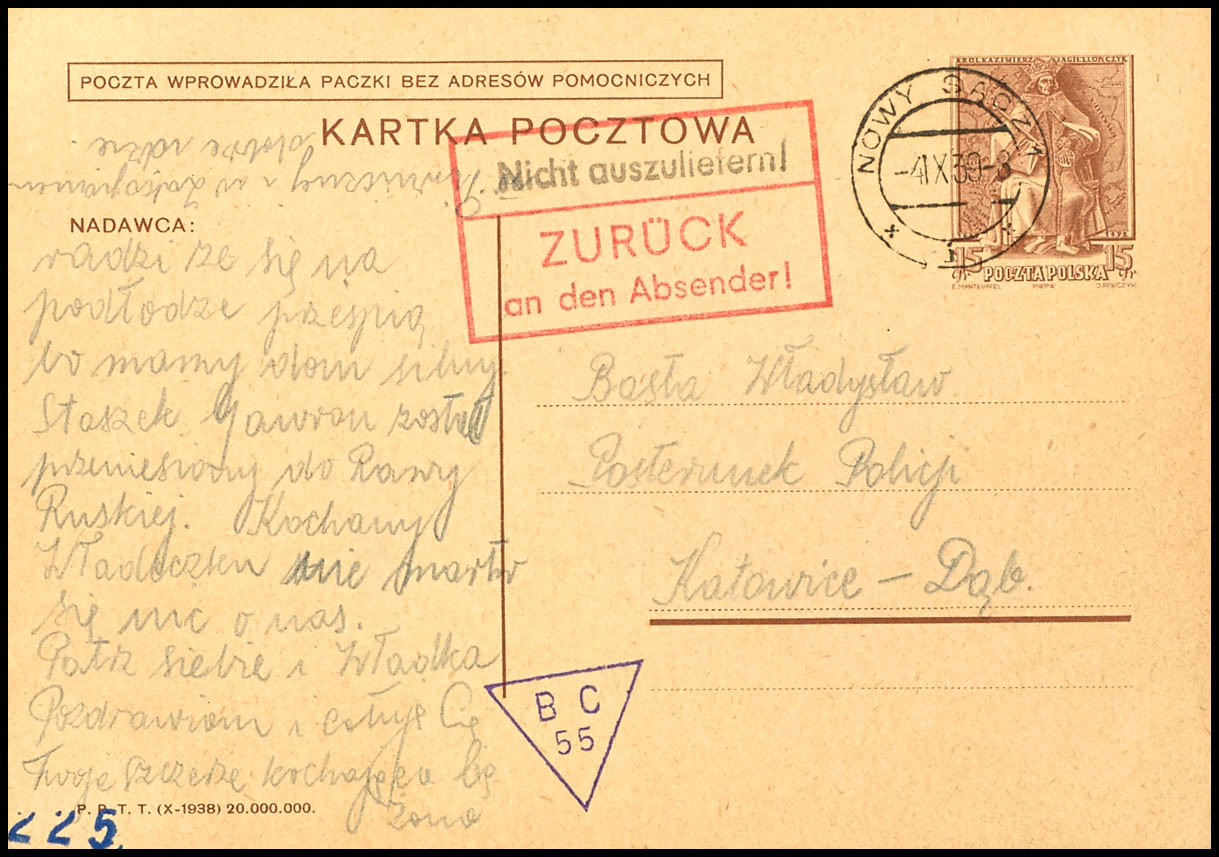 POCZTA WPROWADZIŁA PACZKI BEZ ADRESÓW POMOCNICZYCH
KARTKA POCZTOWA
Nicht auszuliefern!
ZURÜCK
an den Absender!
NOWY SĄCZ 1
-4IX39-8
KRÓL KAZIMIERZ JAGIELLOŃCZYK
15 gr POCZTA POLSKA 15 gr
E. MANTEUFFEL PWPW
NADAWCA:
radzi że się na
podłodze prześpią
bo mamy dom silny.
Staszek Gawron został
przeniesiony do Rawy
Ruskiej. Kochany
Władeczku nie martw
się nic o nas.
Patrz siebie i Władka
Pozdrawiam i całuję Cię
Twoja szczerze kochająca Cię
żona
Basta Władysław
Posterunek Policji
Katowice – Dąb.
B C
55
P. P. T. T. (X-1938) 20.000.000.
225.